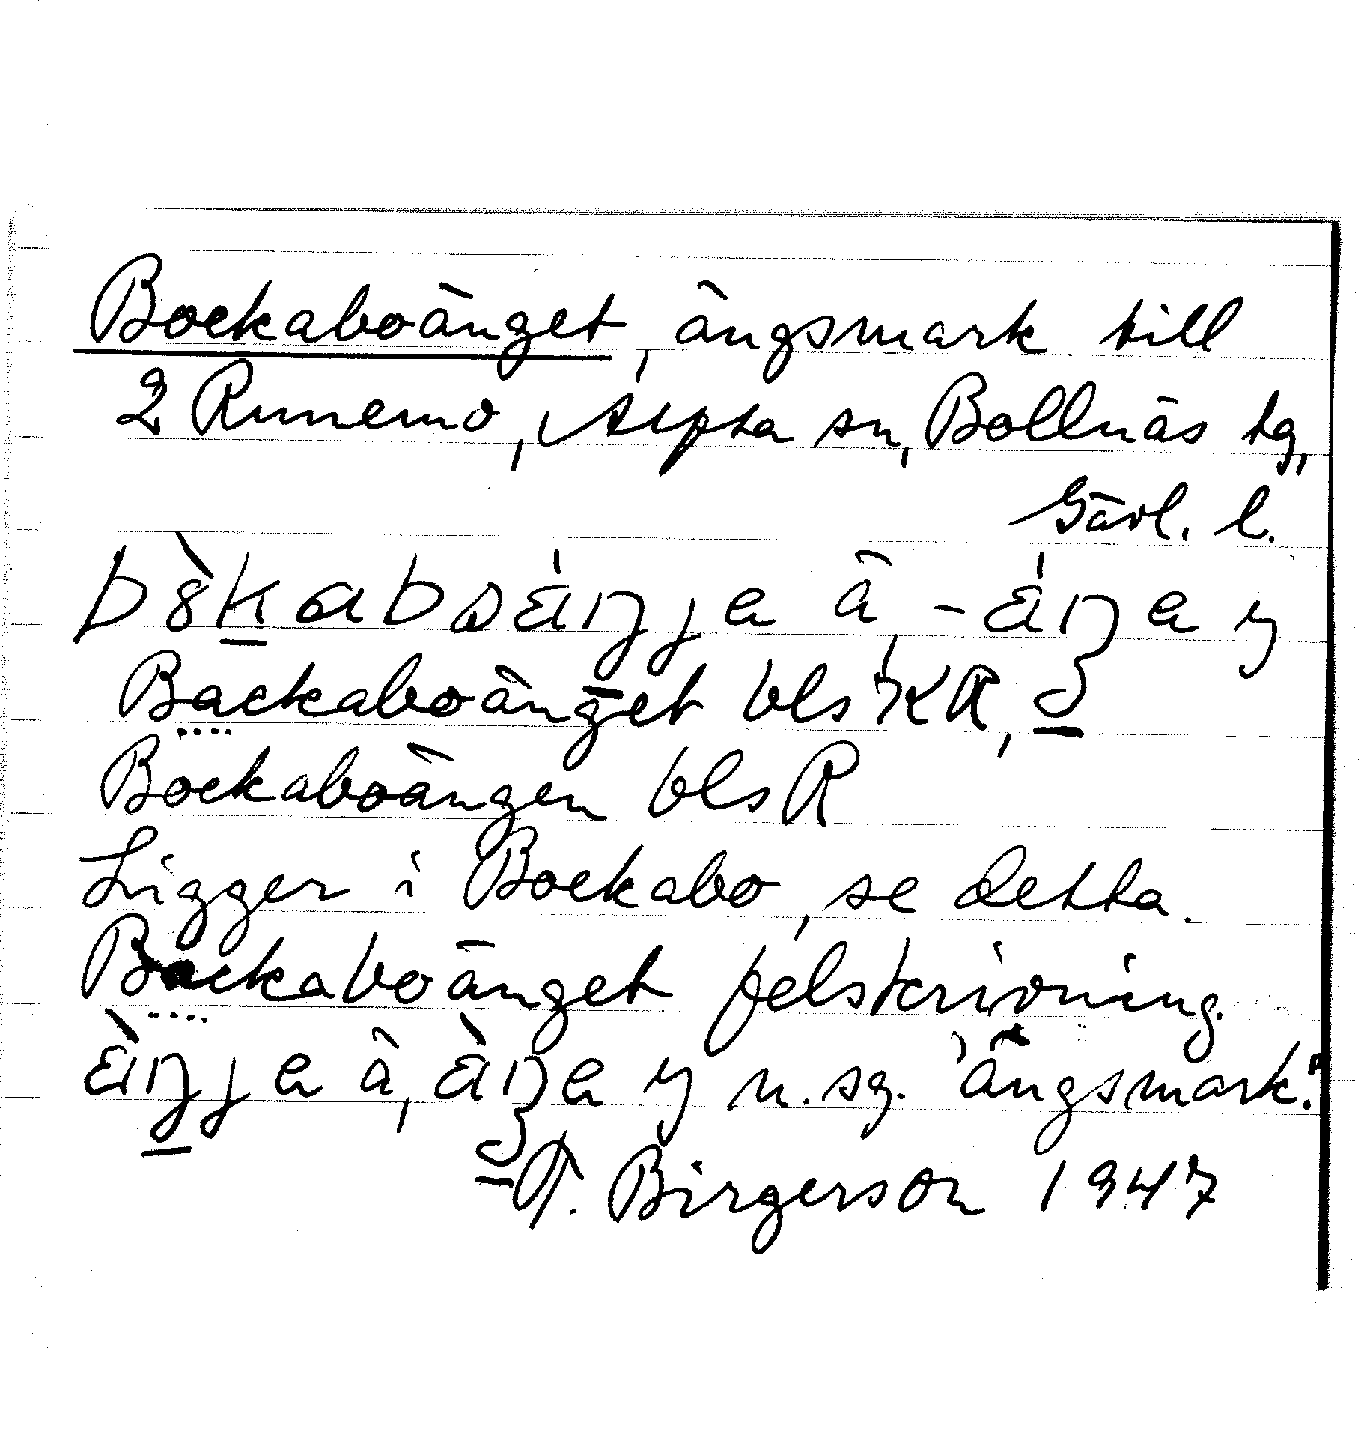 Bockaboänget, ängsmark till
2 Runemo, Alfta sn, Bollnäs tg,
Gävl. l.
Backaboänget bls KR,
Bockaboängen bls R
Ligger i Bockabo, se detta.
Backaboänget felskrivning.
n. sg. 'ängsmark'.
T. Birgerson 1947